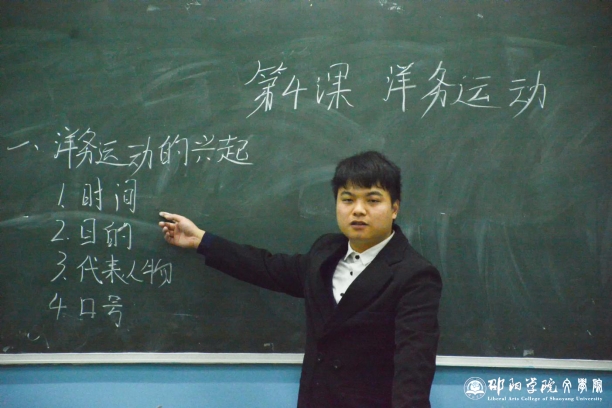 第4课 洋务运动
一、洋务运动的兴起
1.时间
2.目的
3.代表人物
4.口号
邵阳学院文学院
Liberal Arts College of Shaoyang University